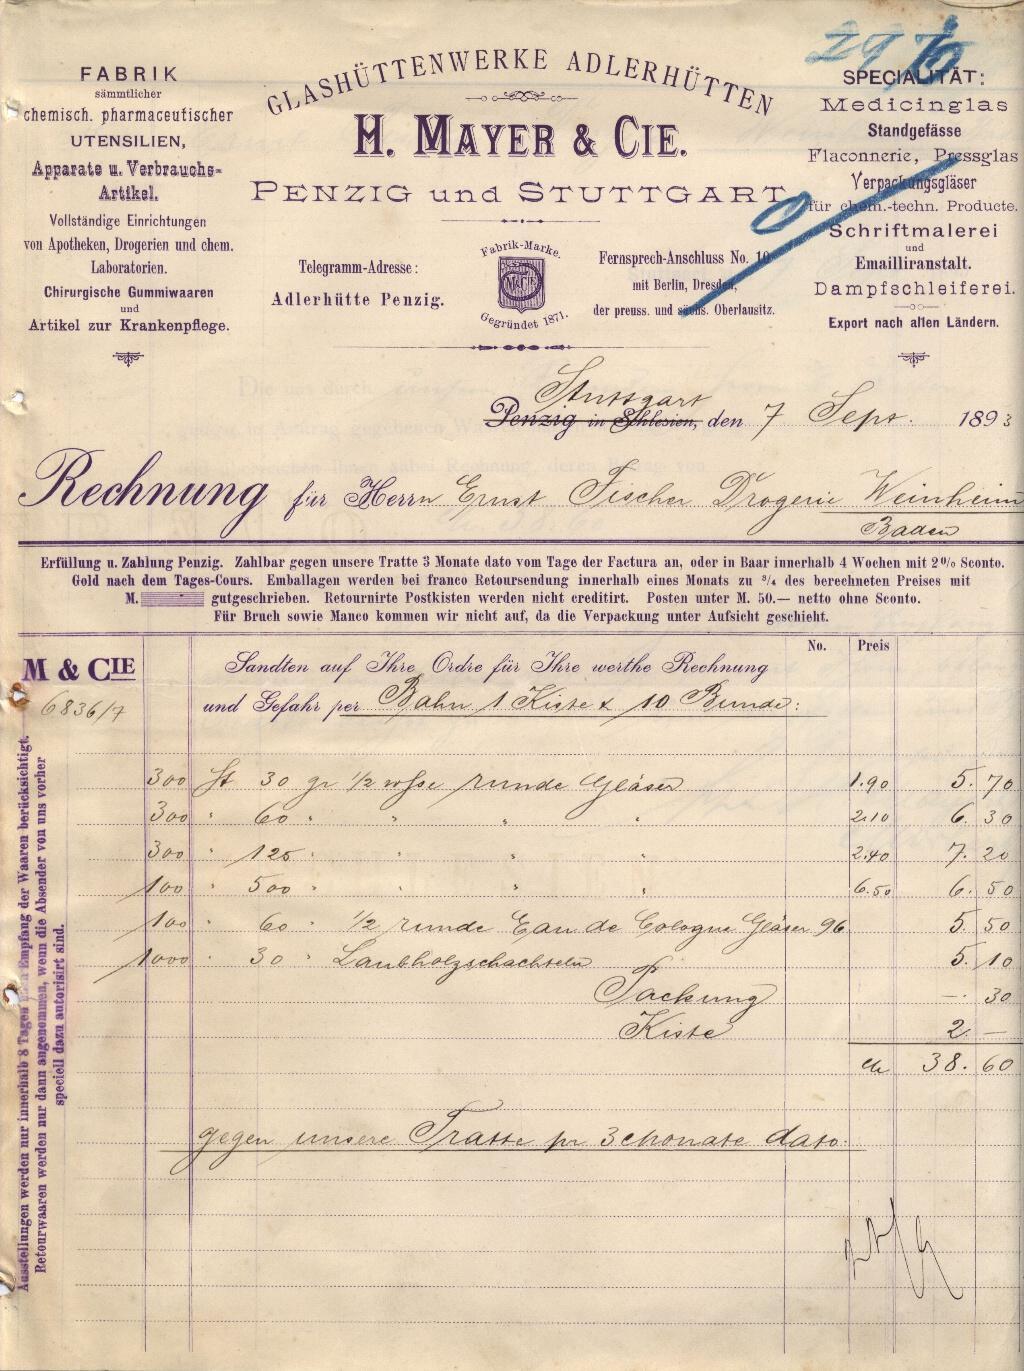 FABRIK
sämmtlicher
chemisch. pharmaceutischer
UTENSILIEN,
Apparate u. Verbrauchs-
Artikel.
Vollständige Einrichtungen
von Apotheken, Drogerien und chem.
Laboratorien.
Chirurgische Gummiwaaren
und
Artikel zur Krankenpflege.
GLASHÜTTENWERKE ADLERHÜTTEN
H. MAYER & CIE.
PENZIG und STUTTGART
Telegramm-Adresse:
Adlerhütte Penzig.
Fabrik-Marke.
M & CIE
Gegründet 1871.
Fernsprech-Anschluss No. 10
mit Berlin, Dresden,
der preuss. und sächs. Oberlausitz.
SPECIALITÄT:
Medicinglas
Standgefässe
Flaconnerie, Pressglas
Verpackungsgläser
für chem.-techn. Producte.
Schriftmalerei
und
Emailliranstalt.
Dampfschleiferei.
Export nach allen Ländern.
Stuttgart
Penzig in Schlesien, den 7 Sept. 1893
Rechnung für Herrn Ernst Fischer Drogerie Weinheim
Baden
Erfüllung u. Zahlung Penzig. Zahlbar gegen unsere Tratte 3 Monate dato vom Tage der Factura an, oder in Baar innerhalb 4 Wochen mit 2% Sconto.
Gold nach dem Tages-Cours. Emballagen werden bei franco Retoursendung innerhalb eines Monats zu 3/4 des berechneten Preises mit
M. gutgeschrieben. Retournirte Postkisten werden nicht creditirt. Posten unter M. 50.— netto ohne Sconto.
Für Bruch sowie Manco kommen wir nicht auf, da die Verpackung unter Aufsicht geschieht.
No. Preis
M & CIE
6836/7
Sandten auf Ihre Ordre für Ihre werthe Rechnung
und Gefahr per Bahn 1 Kiste & 10 Bunde:
300 St 30 gr 1/2 wsse runde Gläser 1.90 5.70
300 " 60 " " " " 2.10 6.30
300 " 125 " " " " 2.40 7.20
100 " 500 " " " " 6.50 6.50
100 " 60 " 1/2 runde Eau de Cologne Gläser 96 5.50
1000 " 30 " Laubholzschachteln 5.10
Packung —.30
Kiste 2.—
M 38.60
gegen unsere Tratte pr 3 Monate dato.
Ausstellungen werden nur innerhalb 8 Tagen nach Empfang der Waaren berücksichtigt.
Retourwaaren werden nur dann angenommen, wenn die Absender von uns vorher
speciell dazu autorisirt sind.